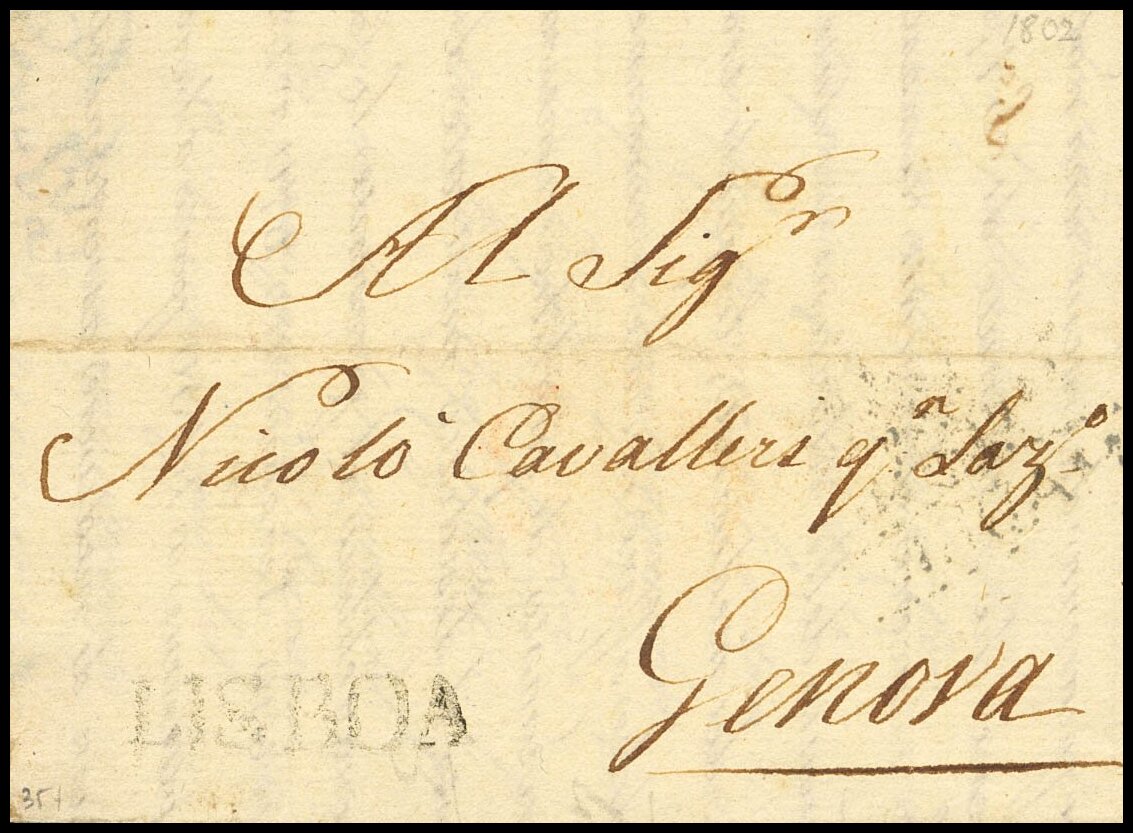 1802
Al Sigʳ
Nicolò Cavalleri qᵐ Lazº
Genova
LISBOA
35+